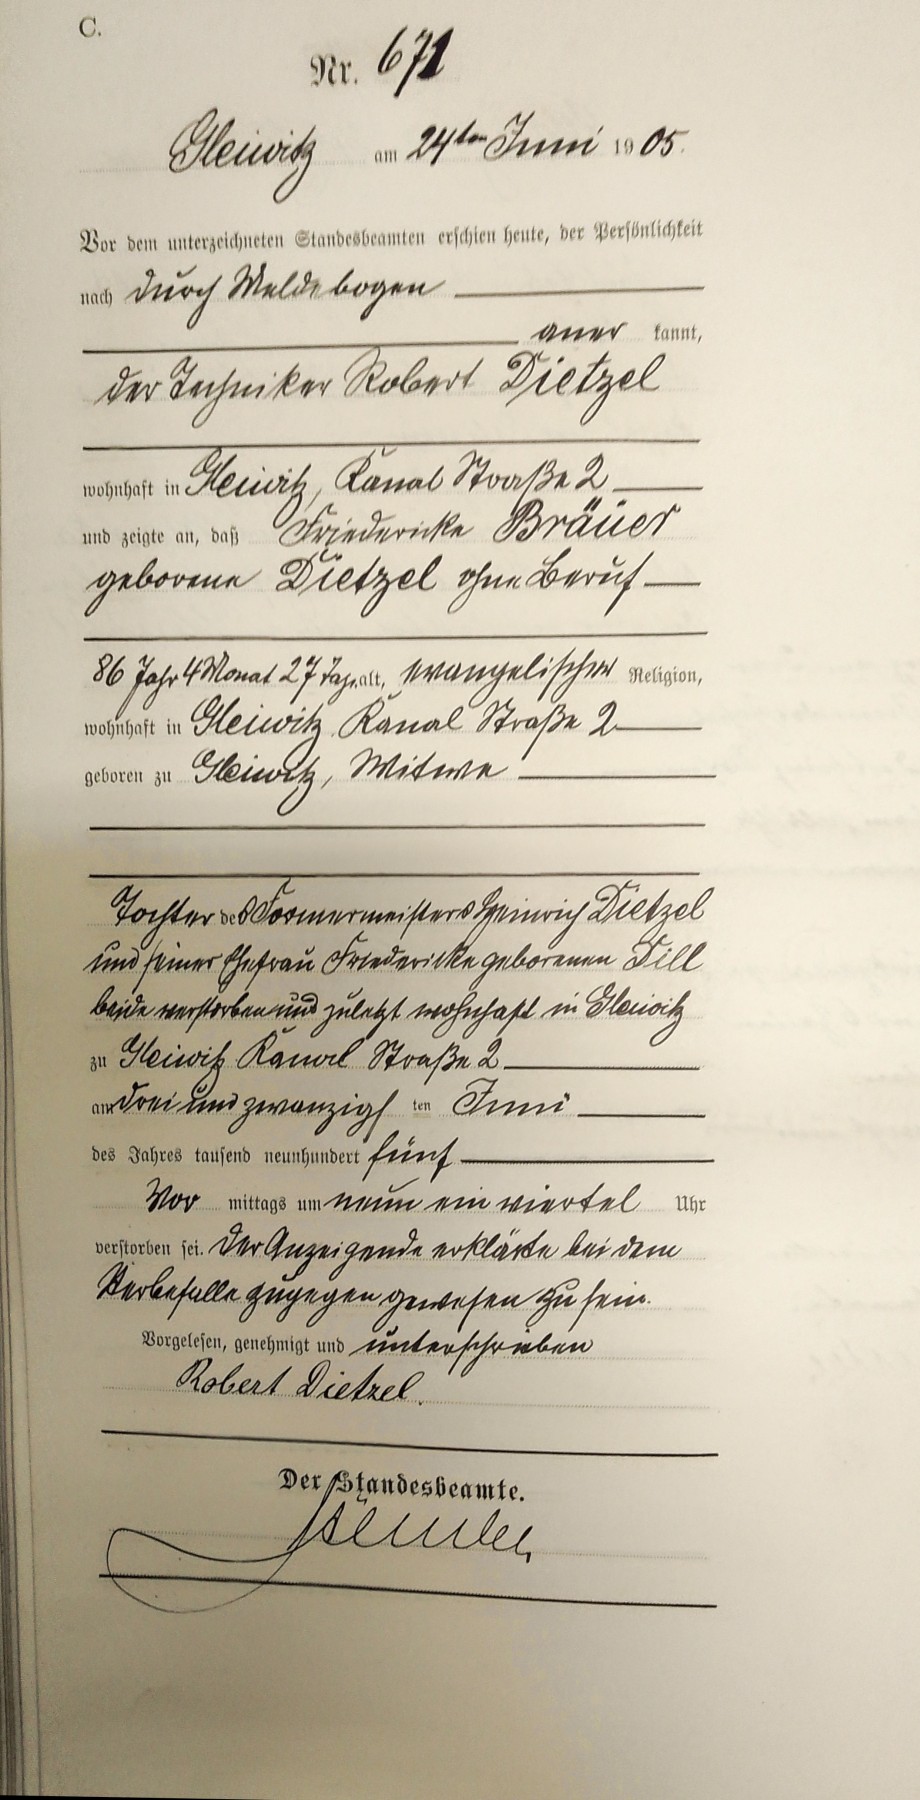 C.
Nr. 671
Gleiwitz am 24ten Juni 1905.
Vor dem unterzeichneten Standesbeamten erschien heute, der Persönlichkeit
nach durch Meldebogen
anerkannt,
der Techniker Robert Dietzel
wohnhaft in Gleiwitz, Kanal Straße 2
und zeigte an, daß Friedericke Bräuer
geborene Dietzel ohne Beruf
86 Jahr 4 Monat 27 Tage alt, evangelischer Religion,
wohnhaft in Gleiwitz Kanal Straße 2
geboren zu Gleiwitz, Witwe
Tochter des Formermeisters Heinrich Dietzel
und seiner Ehefrau Friedericke geborenen Till
beide verstorben und zuletzt wohnhaft in Gleiwitz
zu Gleiwitz Kanal Straße 2
am drei und zwanzigsten Juni
des Jahres tausend neunhundert fünf
Vormittags um neun ein viertel Uhr
verstorben sei. Der Anzeigende erklärte bei dem
Sterbefalle zugegen gewesen zu sein.
Vorgelesen, genehmigt und unterschrieben
Robert Dietzel.
Der Standesbeamte.